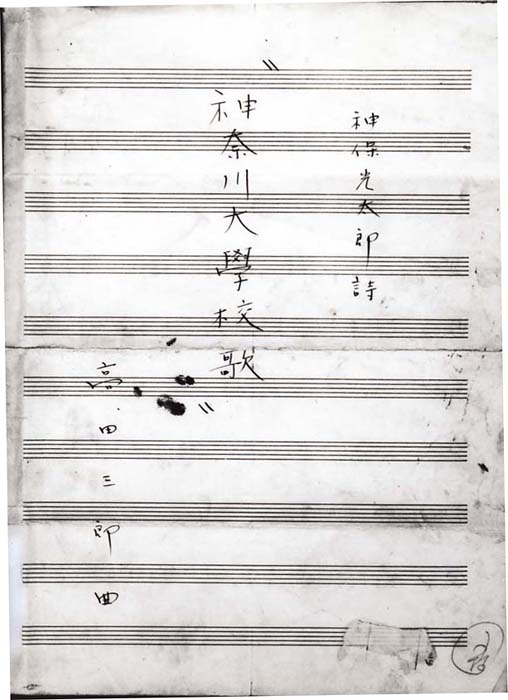 神保光太郎詩
〝神奈川大學校歌〟
高田三郎曲